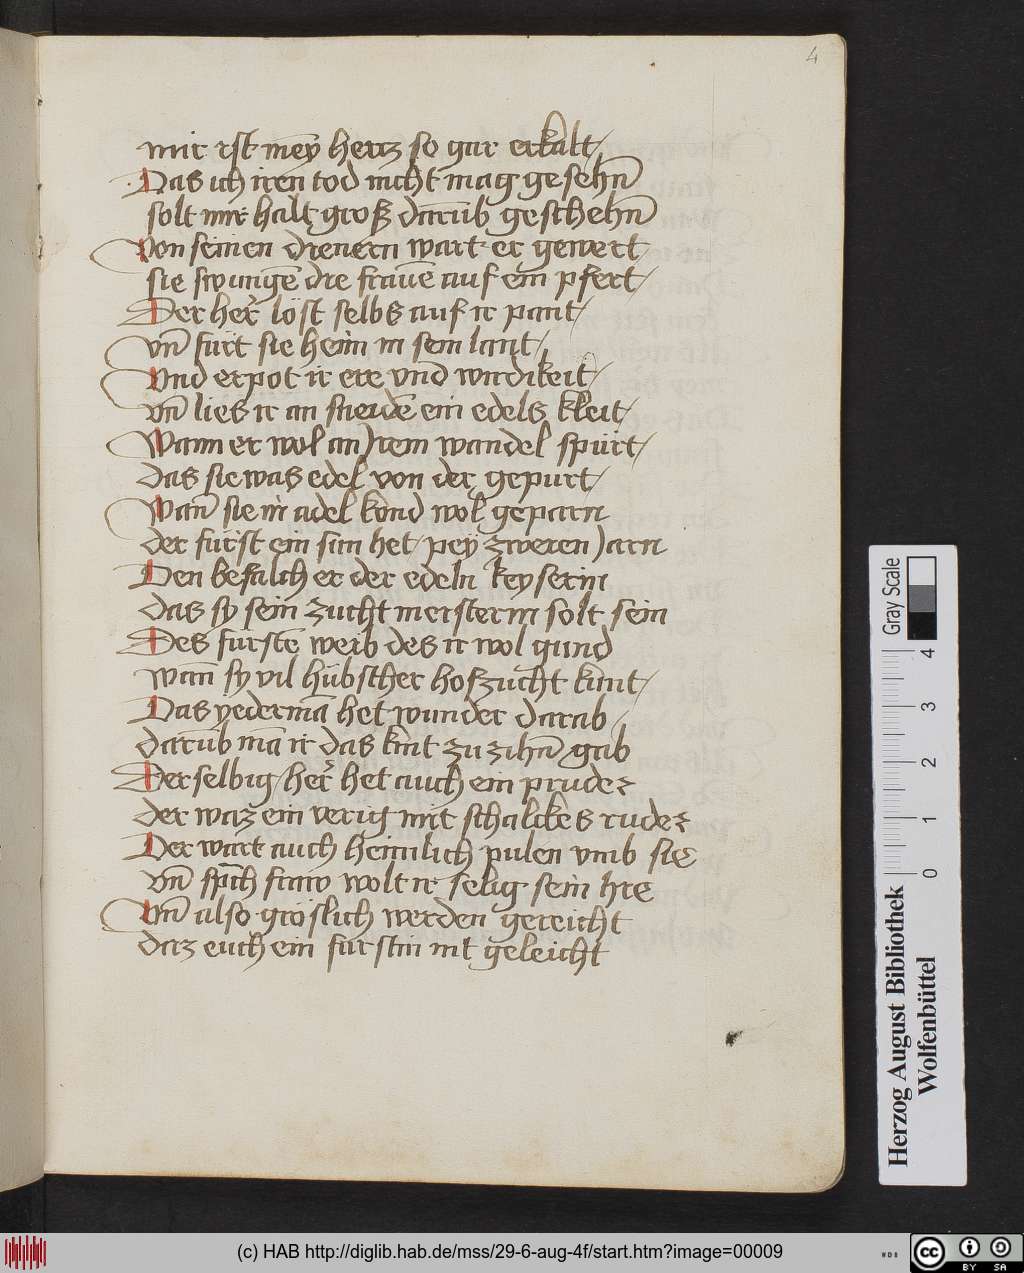 4
mir ist mey̅ hercz so gar erkalt /
Das ich iren tod nicht mag gesehn̅
solt mir halt groß daru̅b geschehn̅
Von seinen dienern wart er gewert
sie swunge̅ die frawe̅ auf ein pfert /
Der her̅ löst selbs auf ir pant /
vn̅ fürt sie heim in sein lant /
Vnd erpot ir ere vnd wirdikeit /
vn̅ lies ir an sneide̅ ein edels kleit /
Wann er wol an Jrem wandel spürt /
das sie was edel von der gepurt /
Wan̅ sie in adel kond wol geparn
der fürst ein sun het pey zweren Jarn
Den befalch er der edeln keyserin
das sy sein zucht meisterin solt sein
Des furste̅ weib des ir wol gund
wan̅ sy vil hübscher hofzucht kunt /
Das yederma̅ het wunder darab
daru̅b ma̅ ir das kint zu zihn̅ gab
Der selbig her̅ het auch ein pruder
der waz ein verig mit schalckes ruder
Der wart auch heimlich pulen vmb sie
vn̅ sp̅ch fraw wolt ir selig sein hie
Vn̅ also gröslich werden gereicht
daz euch ein furstin nit geleicht
Herzog August Bibliothek
Wolfenbüttel
0 1 2 3 4
Gray Scale
(c) HAB http://diglib.hab.de/mss/29-6-aug-4f/start.htm?image=00009
WDB
cc BY SA